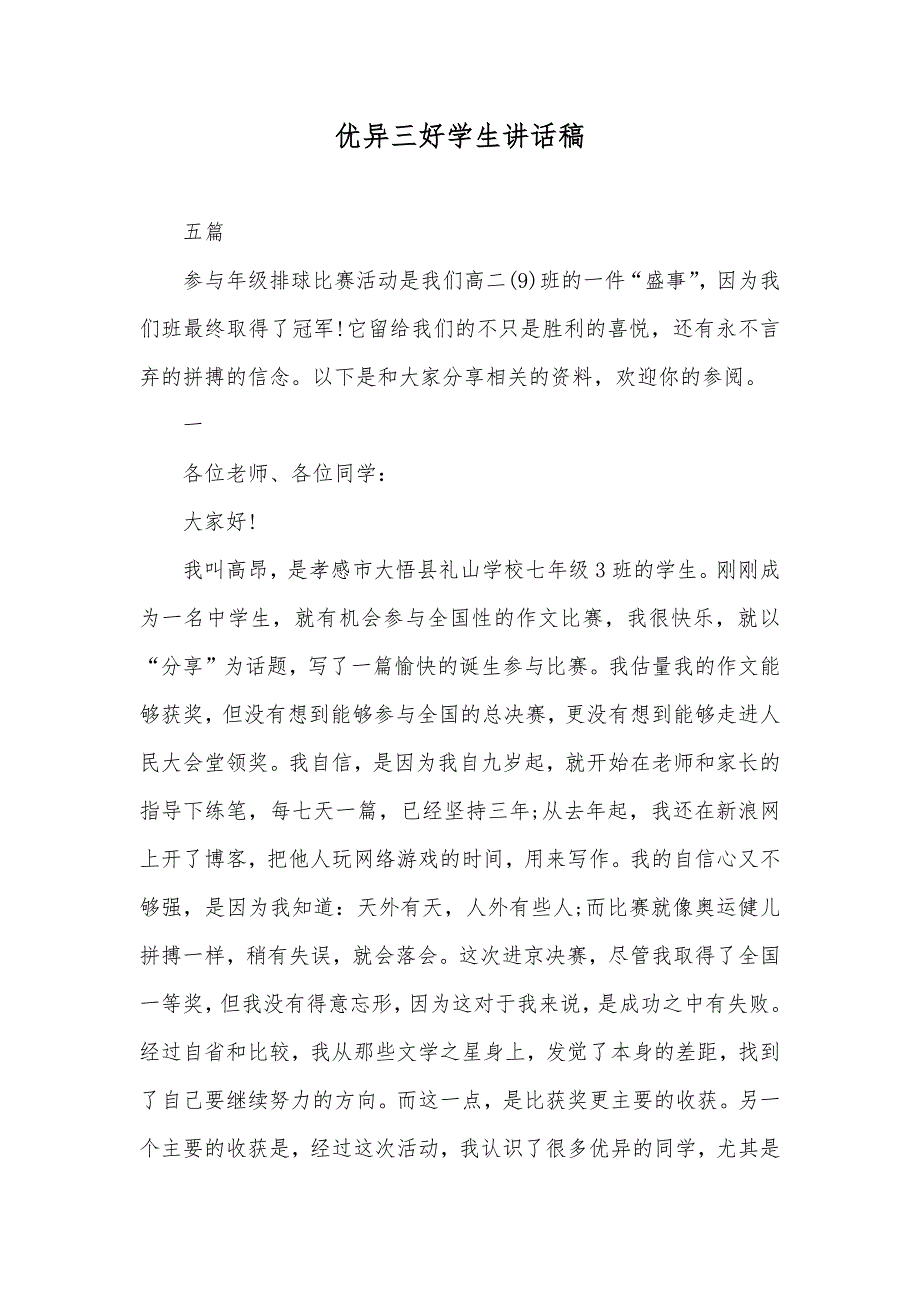 优异三好学生讲话稿
五篇
参与年级排球比赛活动是我们高二(9)班的一件“盛事”，因为我
们班最终取得了冠军!它留给我们的不只是胜利的喜悦，还有永不言
弃的拼搏的信念。以下是和大家分享相关的资料，欢迎你的参阅。
一
各位老师、各位同学：
大家好!
我叫高昂，是孝感市大悟县礼山学校七年级3班的学生。刚刚成
为一名中学生，就有机会参与全国性的作文比赛，我很快乐，就以
“分享”为话题，写了一篇愉快的诞生参与比赛。我估量我的作文能
够获奖，但没有想到能够参与全国的总决赛，更没有想到能够走进人
民大会堂领奖。我自信，是因为我自九岁起，就开始在老师和家长的
指导下练笔，每七天一篇，已经坚持三年;从去年起，我还在新浪网
上开了博客，把他人玩网络游戏的时间，用来写作。我的自信心又不
够强，是因为我知道：天外有天，人外有些人;而比赛就像奥运健儿
拼搏一样，稍有失误，就会落会。这次进京决赛，尽管我取得了全国
一等奖，但我没有得意忘形，因为这对于我来说，是成功之中有失败。
经过自省和比较，我从那些文学之星身上，发觉了本身的差距，找到
了自己要继续努力的方向。而这一点，是比获奖更主要的收获。另一
个主要的收获是，经过这次活动，我认识了很多优异的同学，尤其是